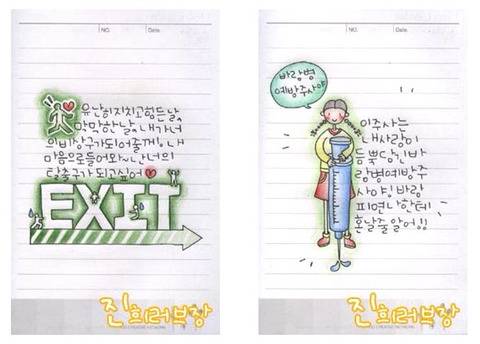 NO.
Date.
유난히지치고힘든날,
막막한날, 내가너
의비상구가되어줄께, 내
마음으로들어와~난너의
탈출구가되고싶어
EXIT
진희러브장
NO.
Date.
바람병
예방주사야
이주사는
내사랑이
듬뿍담긴바
람병예방주
사야! 바람
피면나한테
혼날줄알어!!
진희러브장